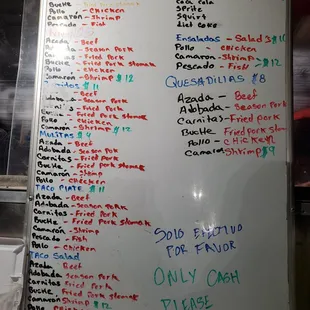 Buche
Pollo - CHicken
Camarón - Shrimp
Pescado - Fish
Azada - Beef
Adobada - Season Pork
Carnitas - Fried Pork
Buche - Fried Pork Stomak
Pollo - CHicken
Camaron - Shrimp $12
$11
Beef
Season Pork
Fried Pork
Fried Pork Stomak
Pollo - CHicken
Camarón - Shrimp $12
Mulitas $4
Azada - Beef
Adobada - Season Pork
Carnitas - Fried Pork
Buche - Fried Pork Stomak
Camarón - Shrimp
Pollo - CHicken
TACO PlATE $11
Azada - Beef
Adobada - Season Pork
Carnitas - Fried Pork
Buche - Fried Pork Stomak
Camarón - Shrimp
Pescado - Fish
Pollo - CHicken
TACO Salad
Azada Beef
Adobada Season Pork
Carnitas Fried Pork
Buche Fried Pork Stomak
Camarón SHrimp $12
Pollo CHicken
coca cola
Sprite
Squirt
diet coke
Ensaladas - Salads
Pollo - CHicken
Camaron - Shrimp $12
Pescado - Fish $12
QUESADILLAS $8
Azada - Beef
Adobada - Season Pork
Carnitas - Fried Pork
BucHe Fried Pork Stomak
Pollo - CHicKEN
Camaron SHrimp $9
SOLO EFECTIVO
POR FAVOR
ONLY CASH
PLEASE